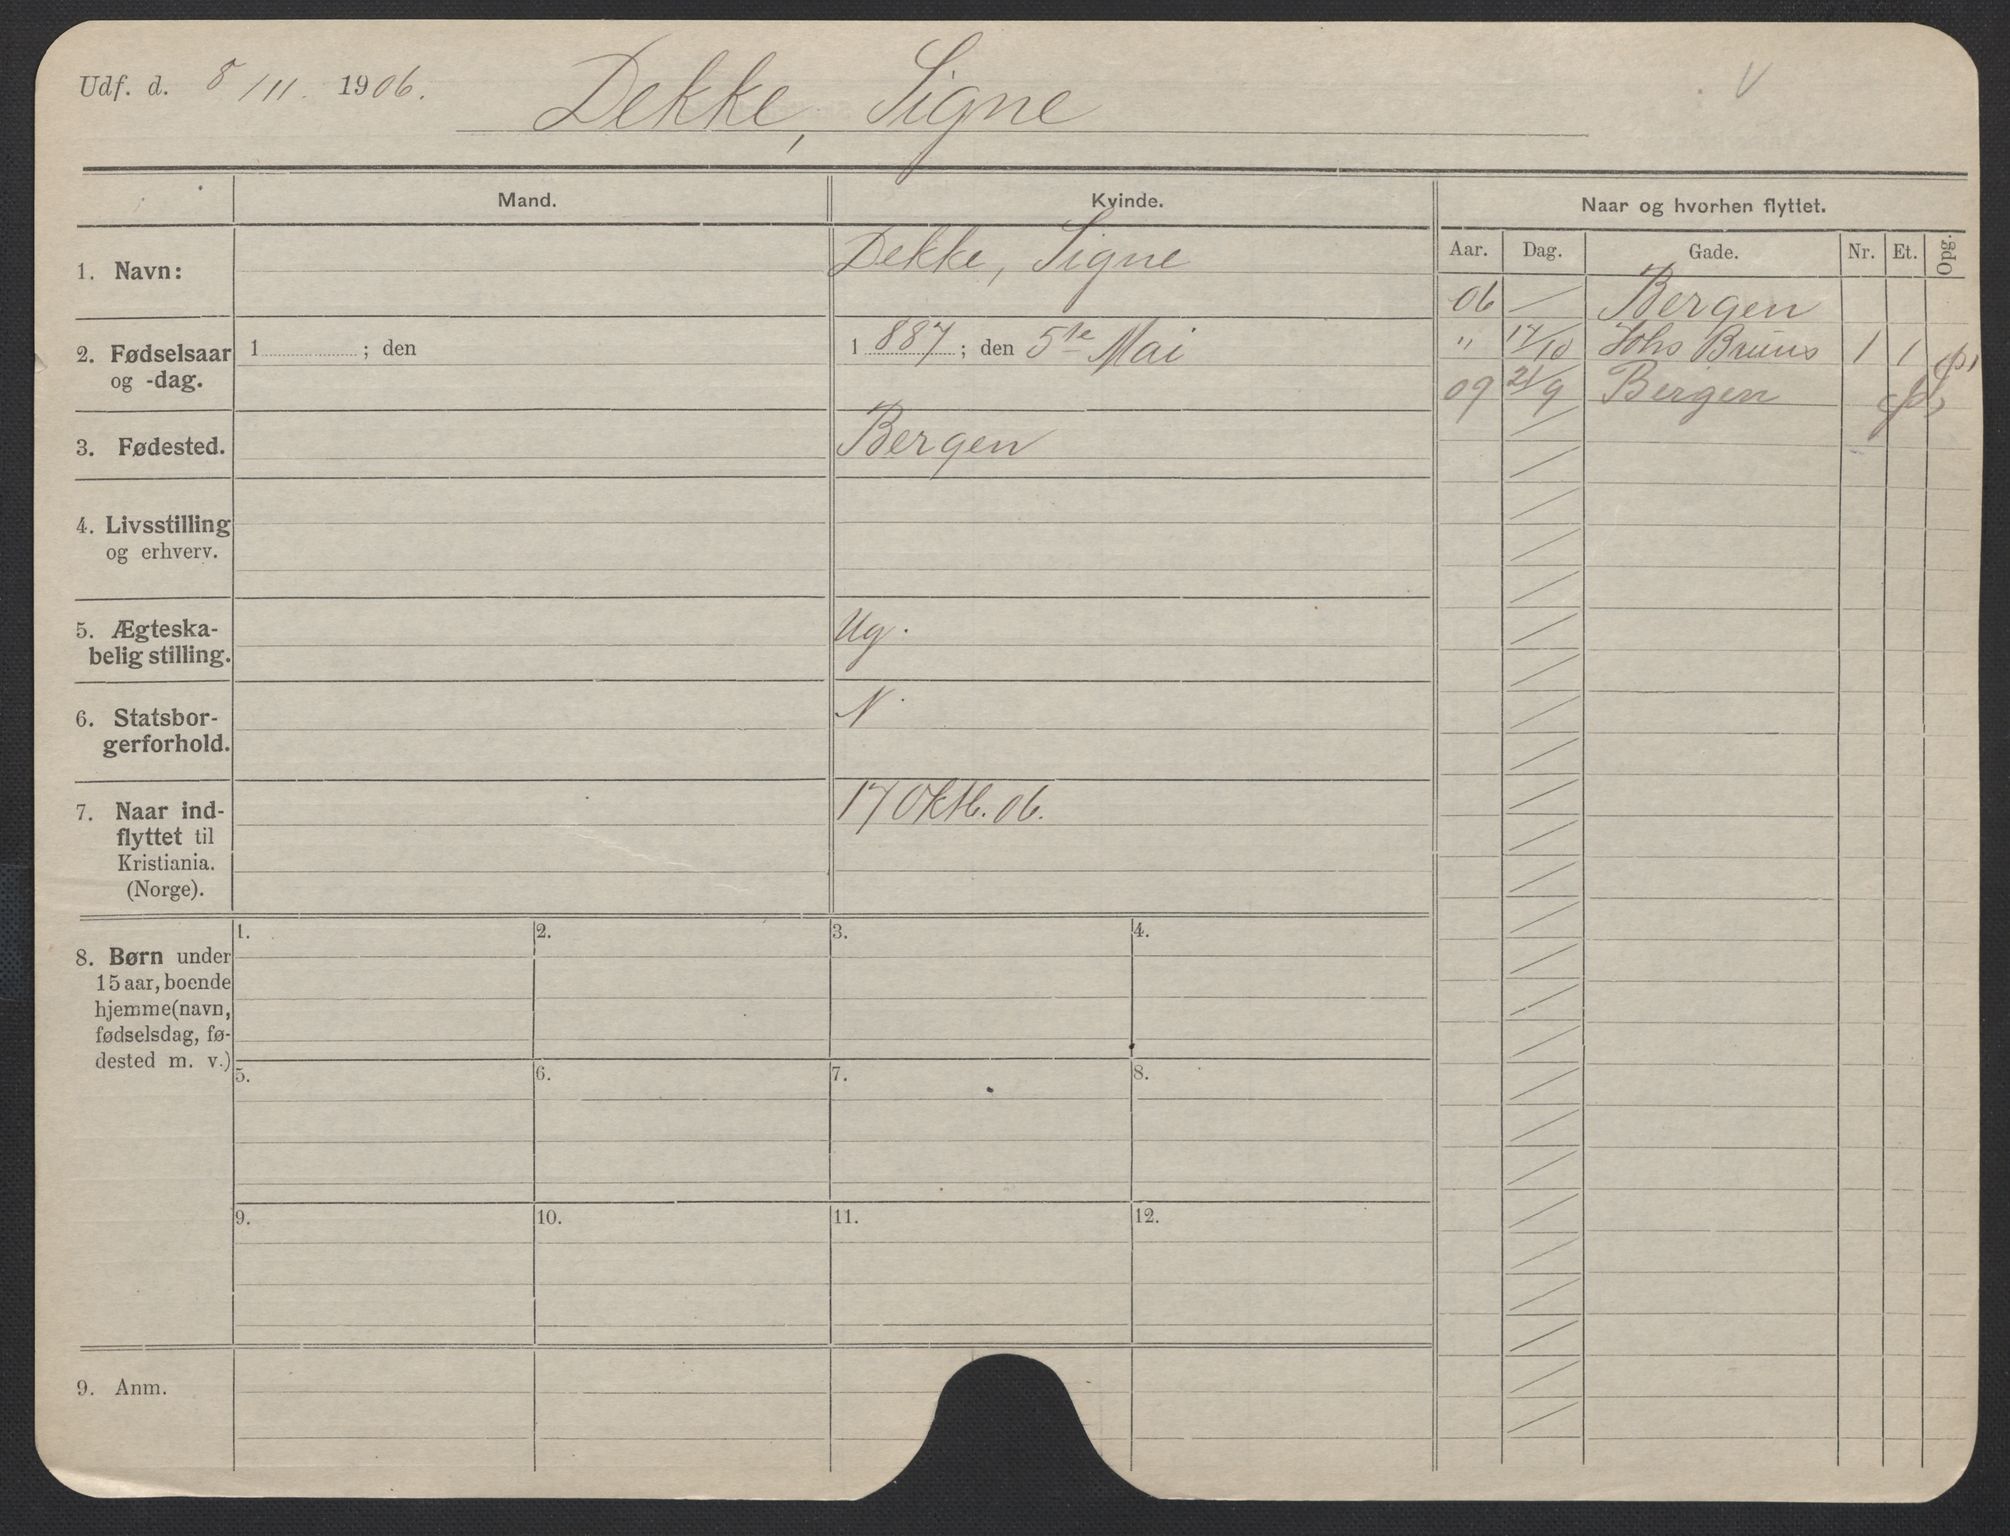 Udf. d. 8/11. 1906. Dekke, Signe
Mand. Kvinde. Naar og hvorhen flyttet.
Aar. Dag. Gade. Nr. Et. Opg.
1. Navn: Dekke, Signe
2. Fødselsaar og -dag. 1 ; den 1887 ; den 5te Mai
3. Fødested. Bergen
4. Livsstilling
og erhverv.
5. Ægteska-
belig stilling. Ug.
6. Statsbor-
gerforhold. N.
7. Naar ind-
flyttet til
Kristiania.
(Norge). 17 Oktb. 06.
06 Bergen
" 17/10 Johs Bruns 1 1
09 21/9 Bergen
8. Børn under
15 aar, boende
hjemme (navn,
fødselsdag, fø-
dested m. v.)
1. 2. 3. 4.
5. 6. 7. 8.
9. 10. 11. 12.
9. Anm.